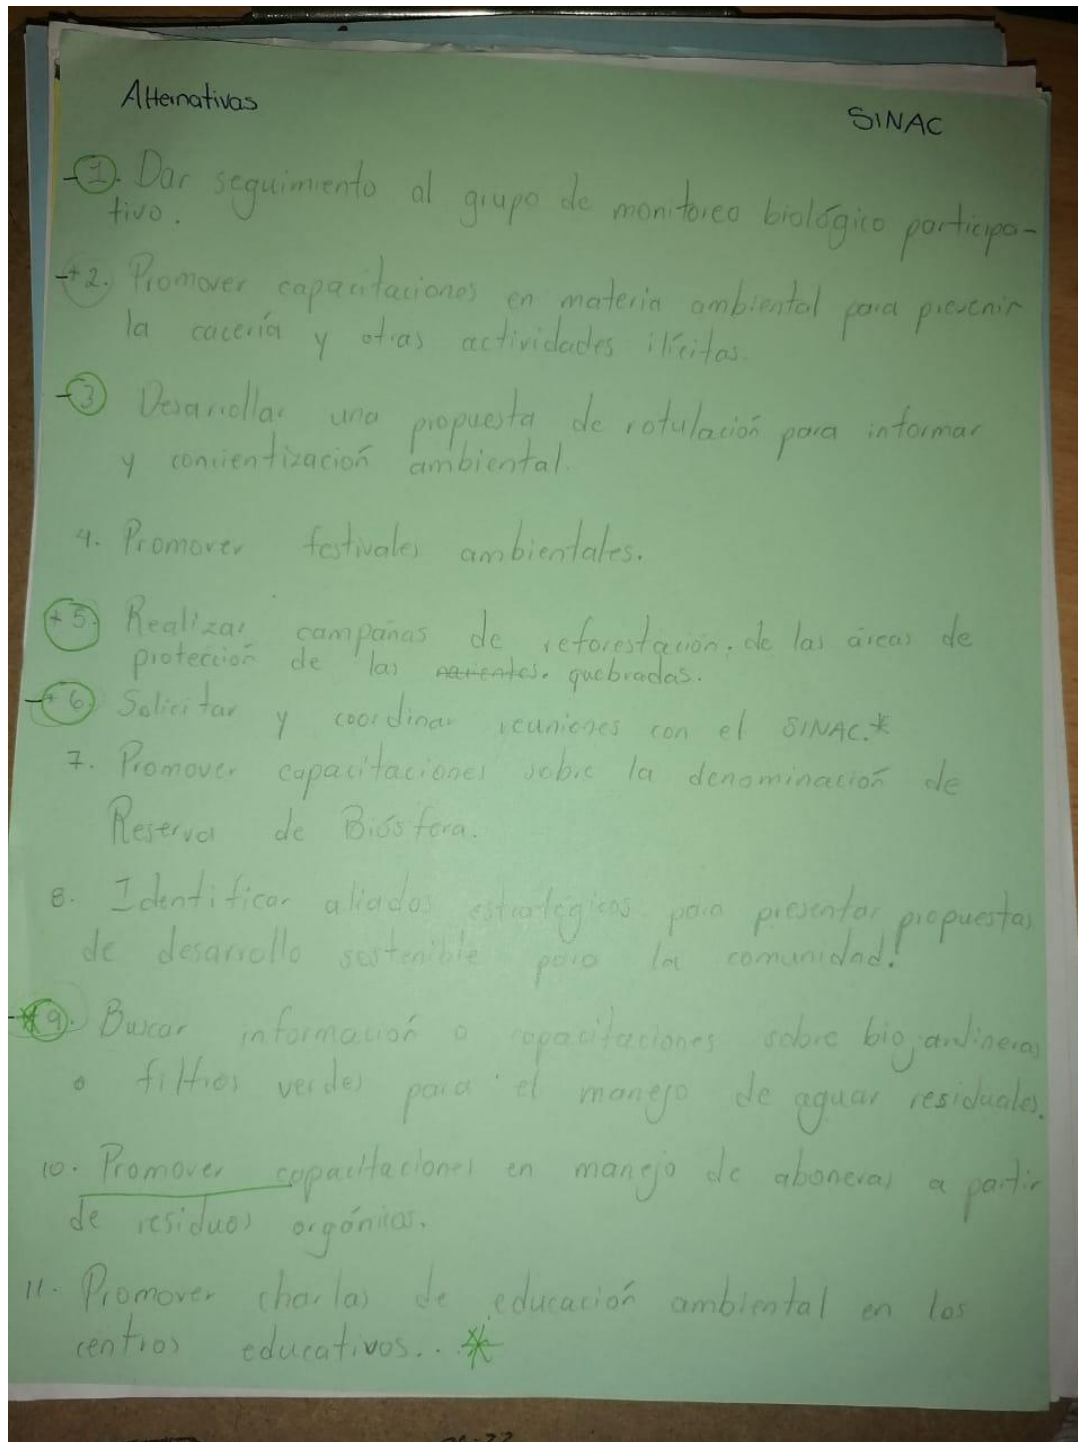 Alternativas
SINAC
-1. Dar seguimiento al grupo de monitoreo biológico participa-
tivo.
-+2. Promover capacitaciones en materia ambiental para prevenir
la cacería y otras actividades ilícitas.
-3 Desarrollar una propuesta de rotulación para informar
y concientización ambiental.
4. Promover festivales ambientales.
+5. Realizar campañas de reforestación. de las áreas de
protección de las quebradas.
-+6. Solicitar y coordinar reuniones con el SINAC.*
7. Promover capacitaciones sobre la denominación de
Reserva de Biósfera.
8. Identificar aliados estratégicos para presentar propuestas
de desarrollo sostenible para la comunidad!
-*9. Buscar información o capacitaciones sobre biojardineras
o filtros verdes para el manejo de aguar residuales.
10. Promover capacitaciones en manejo de aboneras a partir
de residuos orgánicos.
11. Promover charlas de educación ambiental en los
centros educativos... *